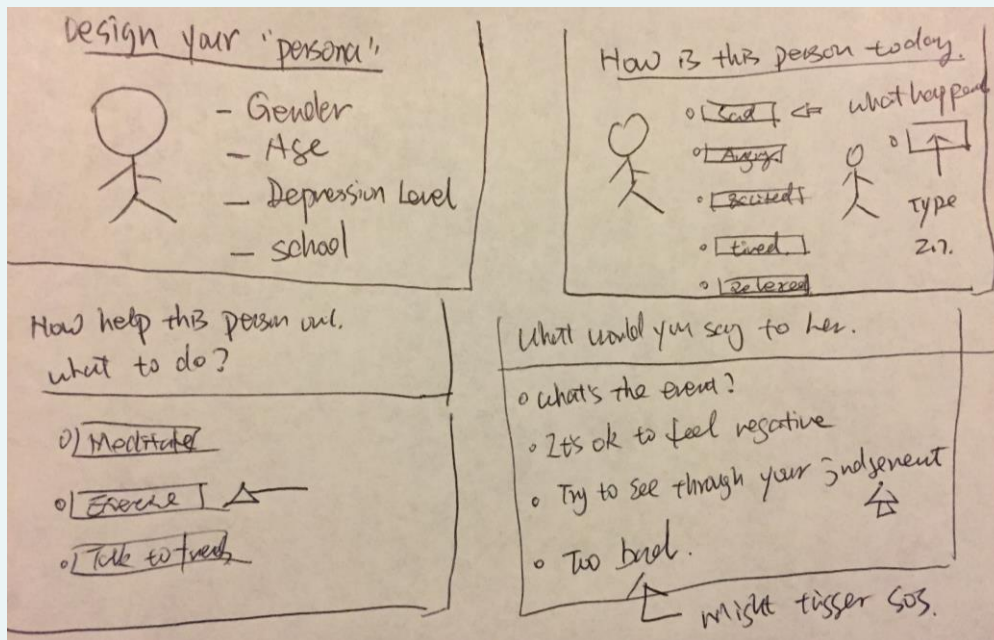 Design your "persona"
- Gender
- Age
- Depression Level
- school
How is this person today.
Sad
what happened
Angry
Excited
tired
Relaxed
Type
How help this person out.
what to do?
Meditate
Exercise
Talk to
What would you say to her.
what's the event?
It's ok to feel negative
Try to see through your judgement
Too bad.
might tigger SOS.